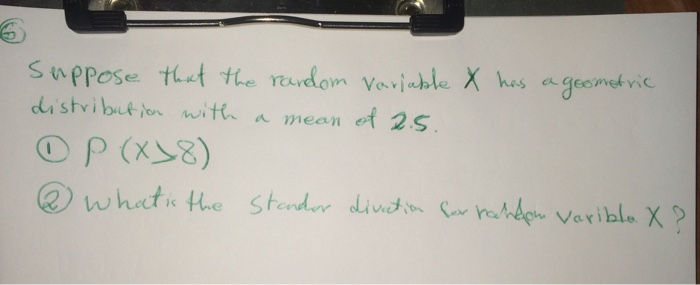 6
Suppose that the random variable X has a geometric
distribution with a mean of 2.5.
① P(X>8)
② what is the stander divection for rahdom varible X?